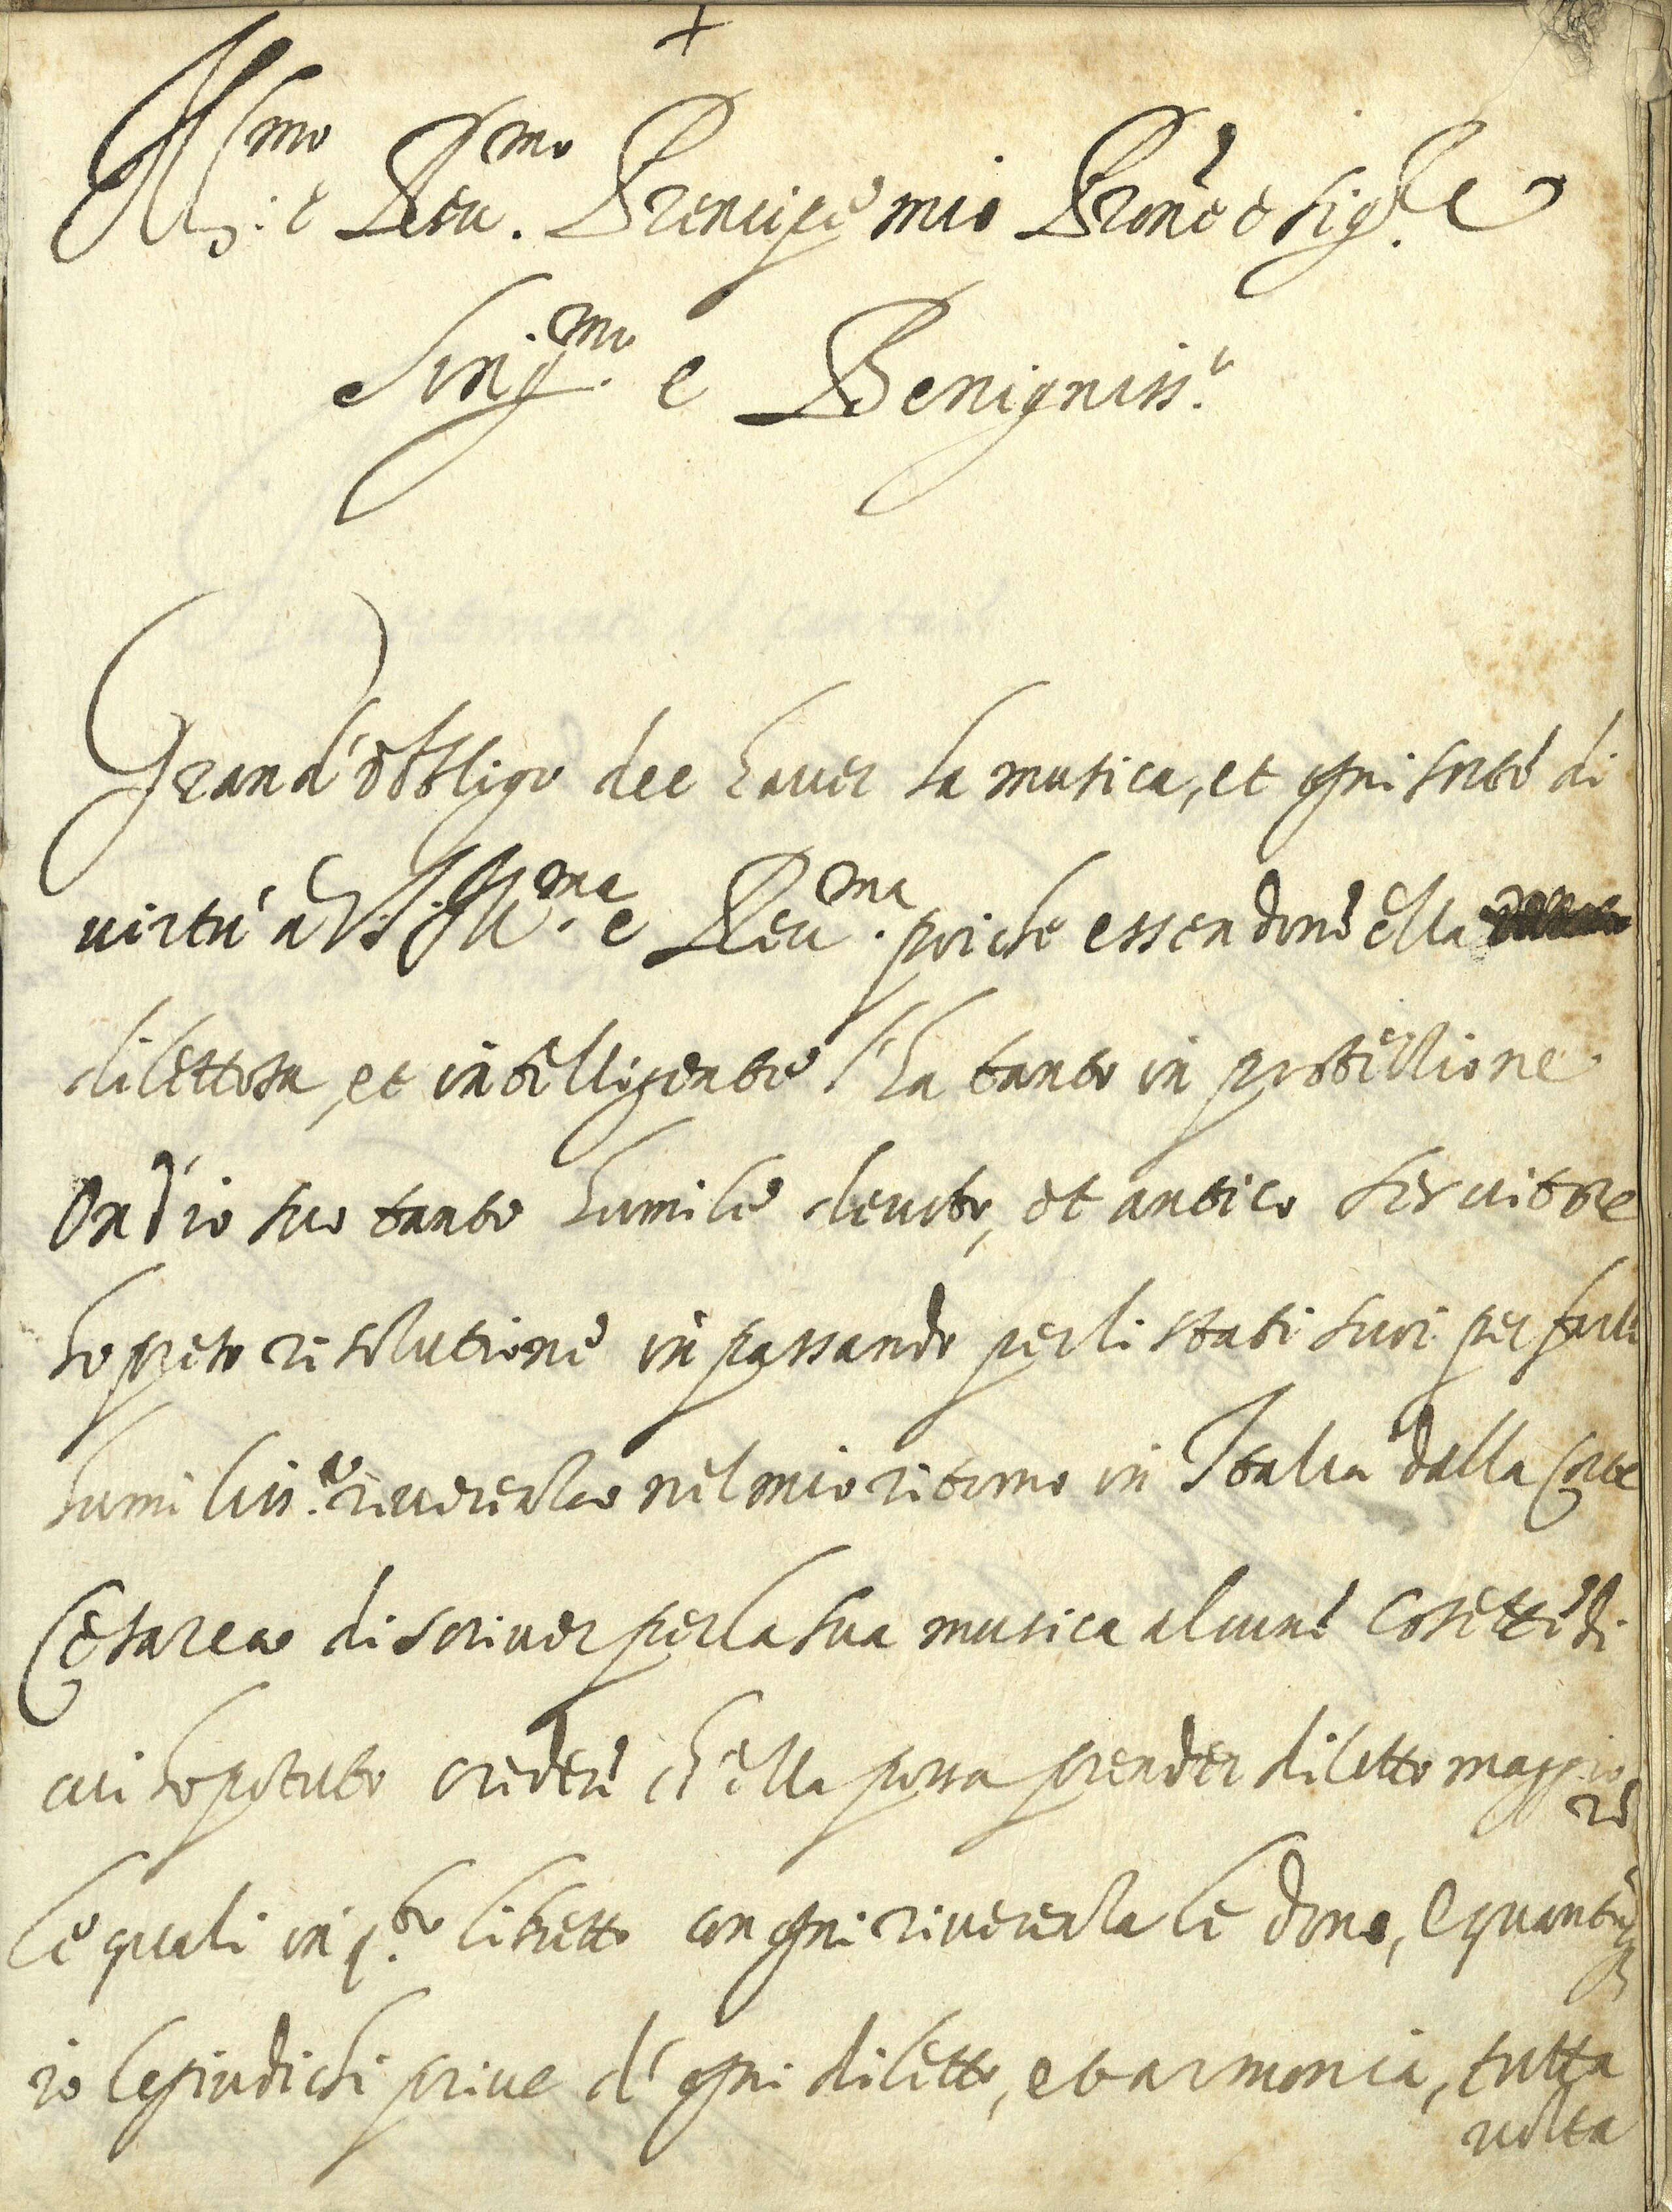 +
Ill.mo e Reu.mo Prencipe mio Prone e sig.re
Sing.mo e Benigniss.o
Grand'obbligo dee hauer la musica, et ogni sorte di
uirtù a V.S. Ill.ma e Reu.ma poiche essendone ella
dilettosa, et intelligente l'ha tanto in protettione
Ond'io suo tanto humile deuoto, et antico seruitore
ho preso risolutione in passando per li stati suoi per farle
humiliss.a riuerenza nel mio ritorno in Italia dalla Corte
Cesarea di scriuer per la sua musica alcune cosette di
cui ho potuto credere ch'ella possa prender diletto maggio
re
le quali in q.to libretto con ogni riuerenza le dono, e quantunq
io le giudichi priue d'ogni diletto, et armonia, tutta
uolta